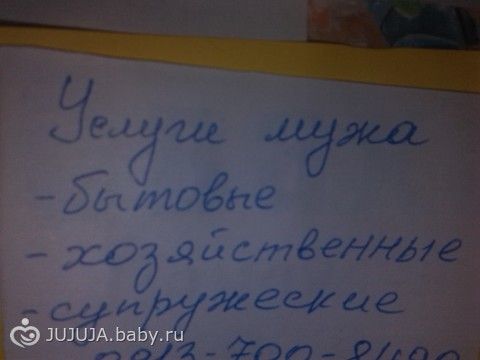 Услуги мужа
- бытовые
- хозяйственные
- супружеские
JUJUJA.baby.ru